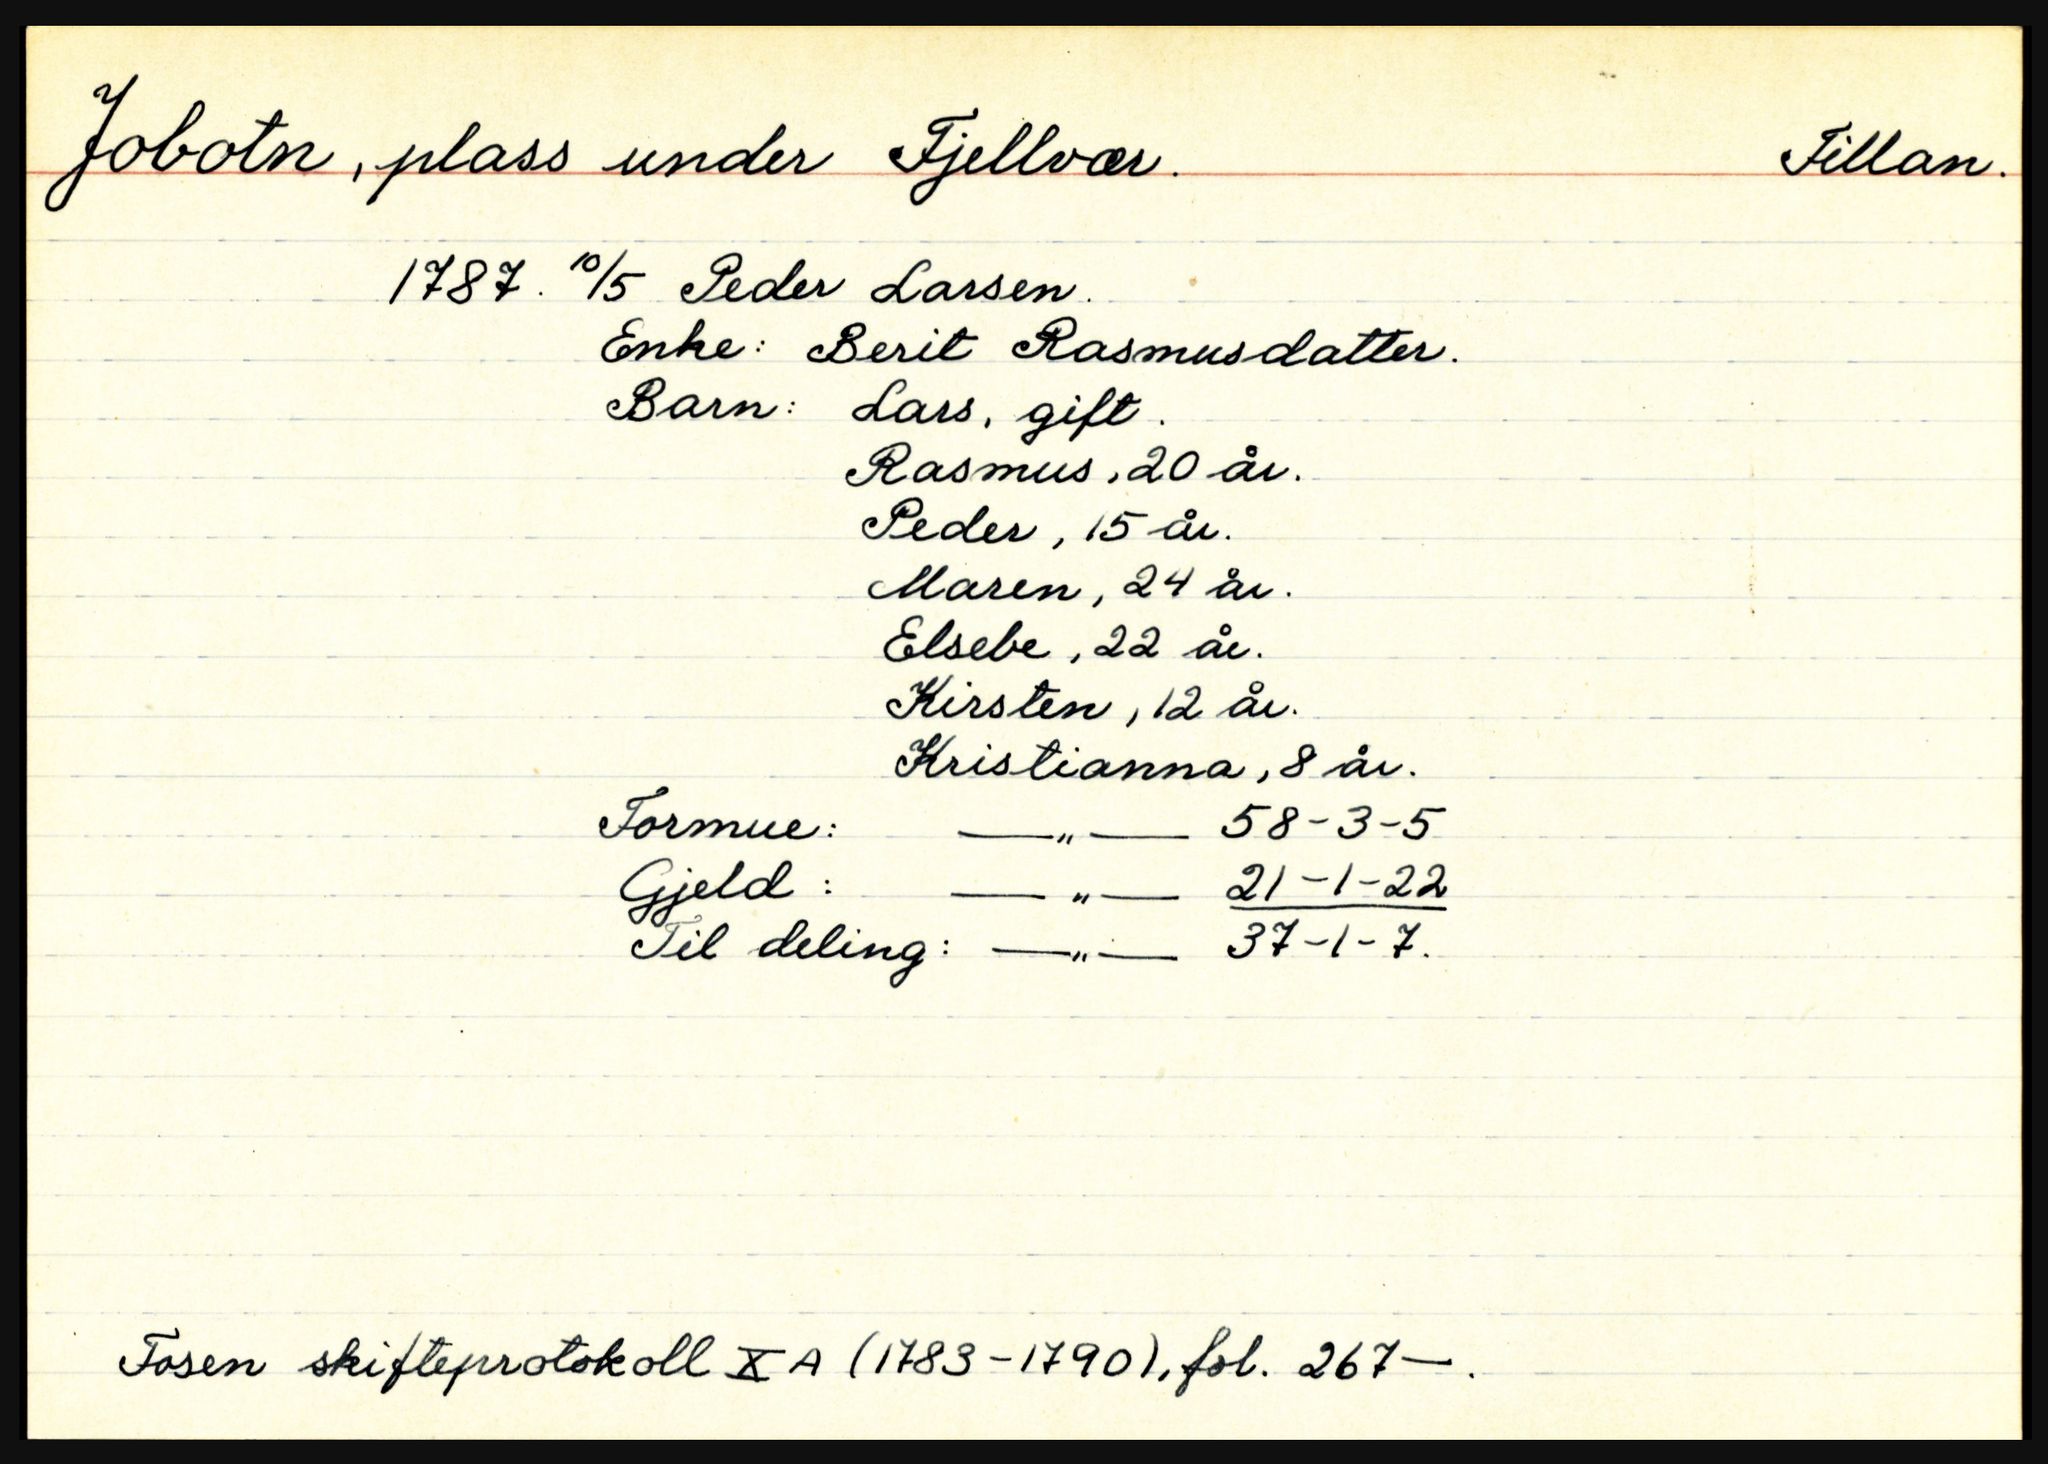 Jobotn, plass under Fjellvær. Fillan.
1787. 10/5 Peder Larsen.
Enke: Berit Rasmusdatter.
Barn: Lars, gift.
Rasmus, 20 år.
Peder, 15 år.
Maren, 24 år.
Elsebe, 22 år.
Kirsten, 12 år.
Kristianna, 8 år.
Formue: —„— 58-3-5
Gjeld: —„— 21-1-22
Til deling: —„— 37-1-7.
Fosen skifteprotokoll X A (1783-1790), fol. 267—.